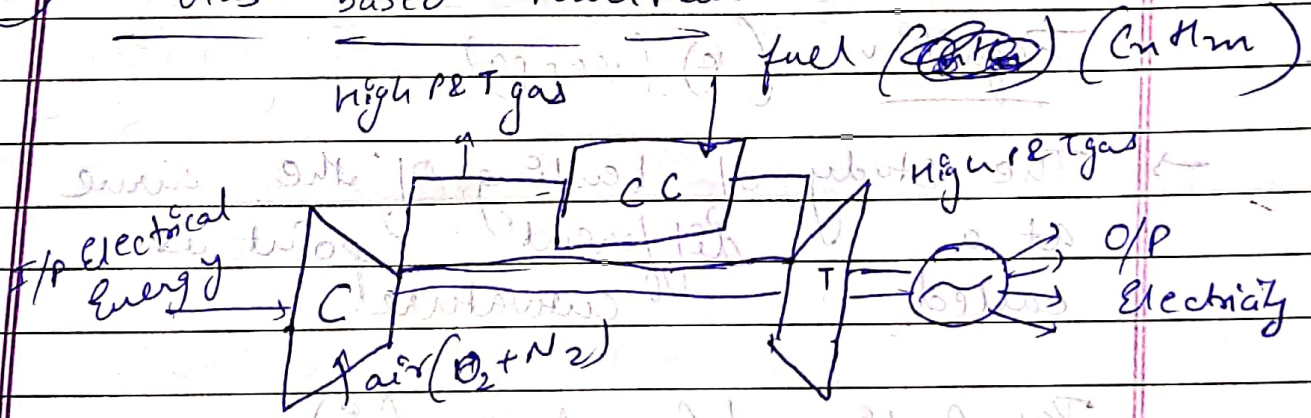 based
fuel (CnHm)
High P&T gas
High P& Tgas
CC
I/P Electrical
Energy
O/P
Electricity
C
T
air (O2+N2)